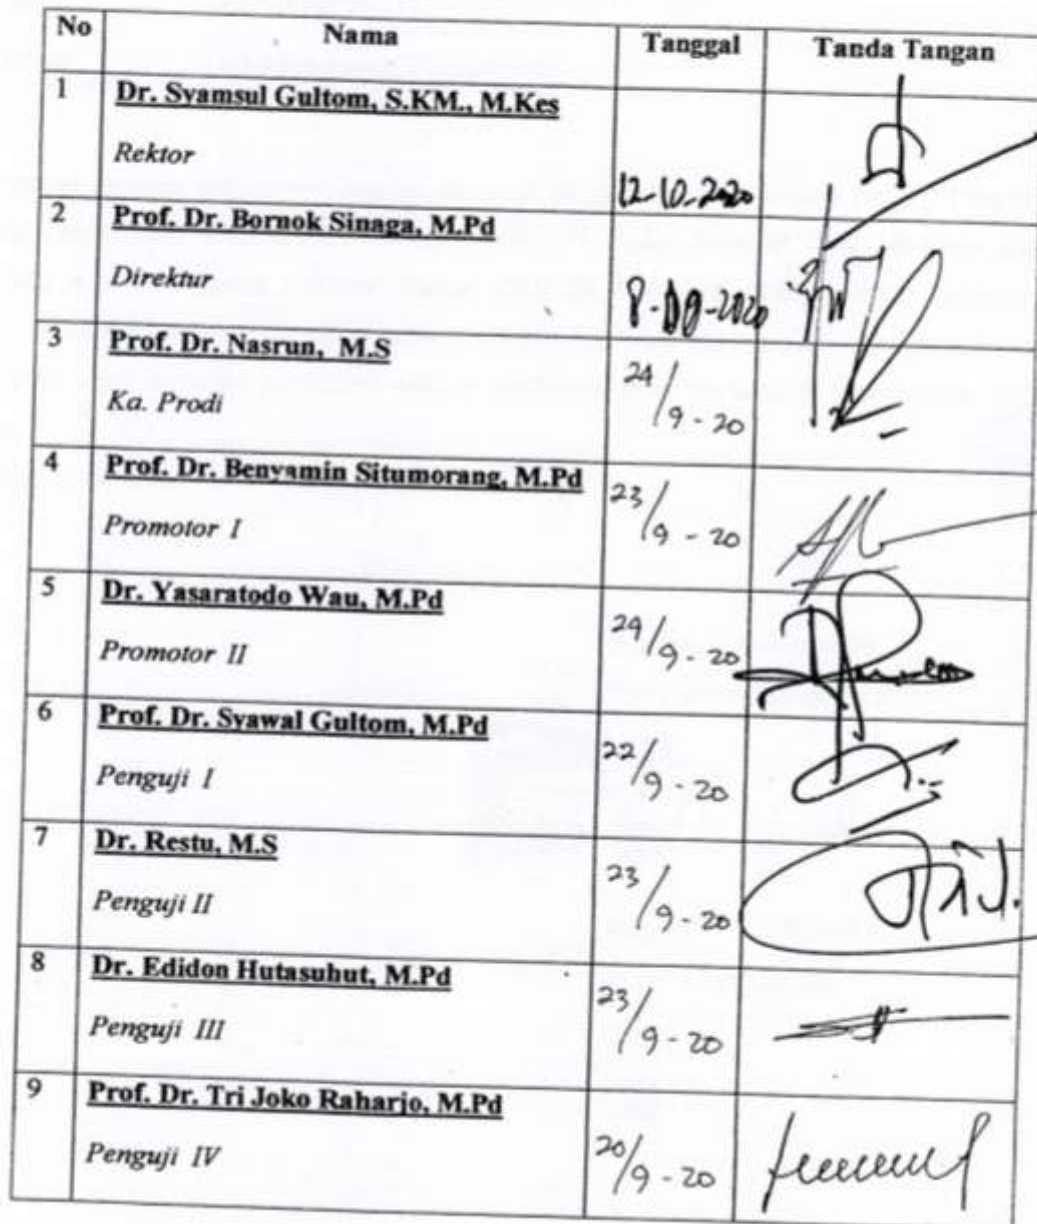 No Nama Tanggal Tanda Tangan
1 Dr. Syamsul Gultom, S.KM., M.Kes
Rektor 12-10-2020
2 Prof. Dr. Bornok Sinaga, M.Pd
Direktur
3 Prof. Dr. Nasrun, M.S
Ka. Prodi 24/9-20
4 Prof. Dr. Benyamin Situmorang, M.Pd
Promotor I 23/9-20
5 Dr. Yasaratodo Wau, M.Pd
Promotor II 24/9-20
6 Prof. Dr. Syawal Gultom, M.Pd
Penguji I 22/9-20
7 Dr. Restu, M.S
Penguji II 23/9-20
8 Dr. Edidon Hutasuhut, M.Pd
Penguji III 23/9-20
9 Prof. Dr. Tri Joko Raharjo, M.Pd
Penguji IV 20/9-20